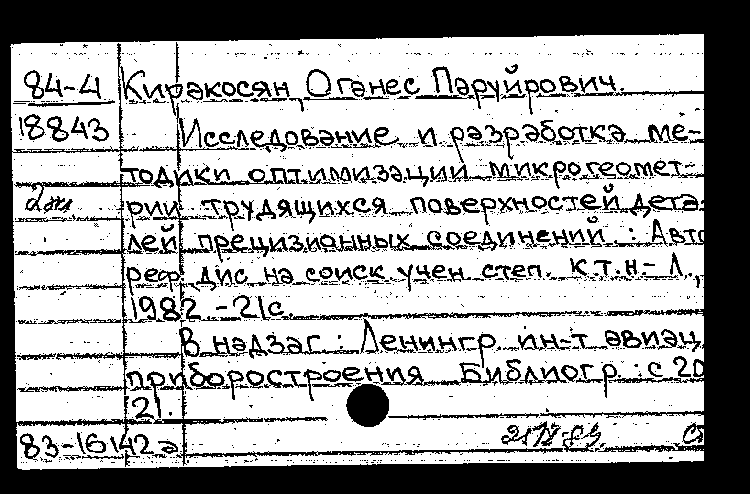 84-4 Киракосян, Оганес Паруйрович.
18843 Исследование и разработка ме-
тодики оптимизации микрогеомет-
2 экз. рии трудящихся поверхностей дета-
лей прецизионных соединений : Авто
реф дис на соиск учен степ. к.т.н. - Л.,
1982 - 21 с.
В надзаг : Ленингр. ин-т авиац
приборостроения Библиогр : с 20
21.
83-16142а